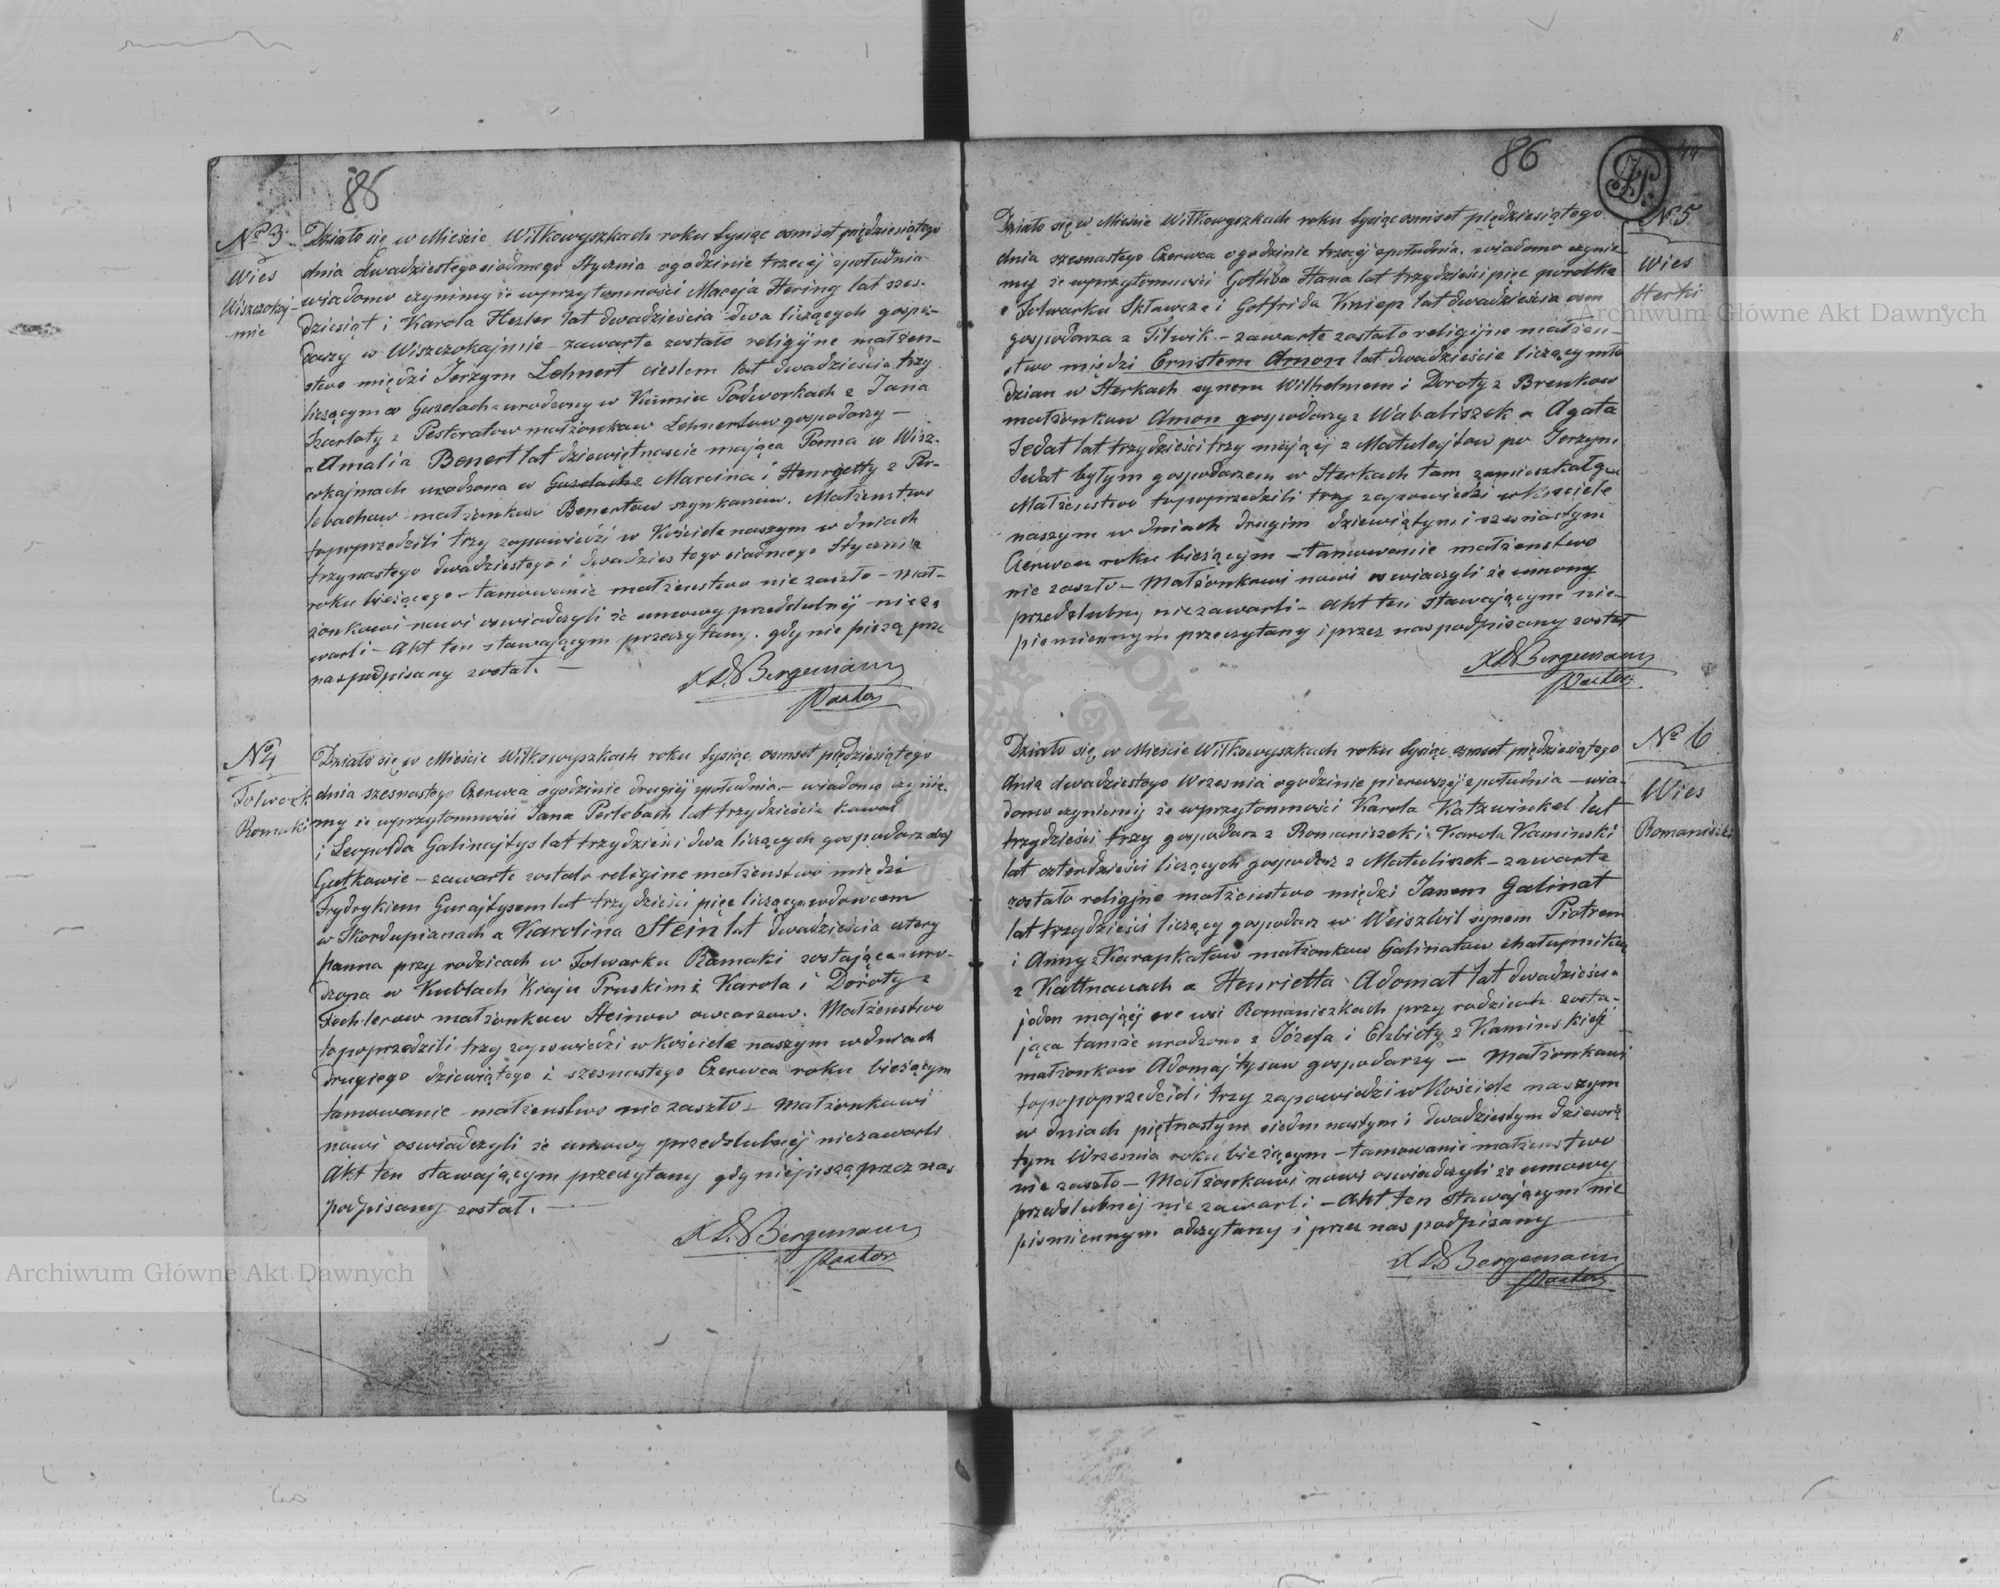 85
№ 3
Wies
Wiszczokaj-
mie
Działo się w Mieście Wiłkowyszkach roku tysiąc osmset piędziesiątego
dnia Dwadziestego siodmego Stycznia o godzinie trzeciej z południa
wiadomo czynimy że w przytomności Macieja Hering lat szes-
dziesiąt i Karola Hesler lat dwadzieścia dwa liczących gospo-
darzy w Wiszczokajmie – zawarte zostało religijne małżen-
stwo między Jerzym Lehnert cieslem lat dwadzieścia trzy
liczącym w Guzelach urodzony w Podworkach z Jana
Szarloty z małżonkow Lehnertow gospodarzy –
a Amalia Benert lat dziewiętnascie mająca Panna w Wisz-
cokajmach urodzona w Marcina i Henrjetty z Per-
lebachow małżonkow Benertow szynkarzow. Małżenstwo
to poprzedzili trzy zapowiedzi w Kościele naszym w dniach
trzynastego dwadziestego i dwadziestego siodmego Stycznia
roku bieżącego – tamowanie małżenstwo nie zaszło – Mał-
żonkowi nowi oswiadczyli że umowy przedslubnej nieza
warli – Akt ten stawającym przeczytany, gdy nie piszą prze
nas podpisany został. –
X L Bergemann
Pastor
№ 4
Folwark
Romaki
Działo się w Mieście Wiłkowyszkach roku tysiąc osmset piędziesiątego
dnia szesnastego Czerwca o godzinie drugiej z południa – wiadomo czynie-
my że w przytomności Jana Perlebach lat trzydzieścia
i Leopolda Galinajtys lat trzydzieści dwa liczących gospodarz
Gutkowie – zawarte zostało religine małżenstwo między
Frydrykiem Gurajtysem lat trzydzieści pięc liczącym wdowcem
w Skordupianach a Karolina Stein lat dwadzieścia cztery
panna przy rodzicach w Folwarku Ramaki zostająca uro-
dzona w Kublach Kraju Pruskim z Karola i Doroty z
małżonkow Steinow owczarzow. Małżenstwo
to poprzedzili trzy zapowiedzi w Kościele naszym w dniach
drugiego dziewiątego i szesnastego Czerwca roku bieżącym
tamowanie małżenstwo nie zaszło – Małżonkowi
nowi oswiadczyli że umowy przedslubnej niezawarli
Akt ten stawającym przeczytany gdy niepiszą przez nas
podpisany został. –
X L Bergemann
Pastor
86
44
№ 5
Wies
Sterki
Działo się w Mieście Wiłkowyszkach roku tysiąc osmset piędziesiątego
dnia szesnastego Czerwca o godzinie trzeciej z południa, wiadomo czynie-
my że w przytomności Gotliba Hana lat trzydzieści pięc parobka
z Folwarku i Gotfrida Kniepr lat dwadzieścia osm
gospodarza z – zawarte zostało religijne małżen-
stwo między Ernstem Amon lat dwadzieście liczącym mło
dzian w Sterkach synem Wilhelmem i Doroty z Brenkow
małżonkow Amon gospodarzy z Wabaliszek a Agata
Sedat lat trzydzieści trzy mającej z Matulajtow po Jerzym
Sedat byłym gospodarzem w Sterkach tam zamieszkałym
Małżenstwo to poprzedzili trzy zapowiedzi w Kosciele
naszym w dniach drugim dziewiątym i szesnastym
Czerwca roku bieżącym – tamowanie małżenstwo
nie zaszło – Małżonkowi nowi oswiaczyli że umowy
przedslubny niezawarli – Akt ten stawającym nie-
pismiennym przeczytany i przez nas podpisany został
X L Bergemann
Pastor
№ 6
Wies
Romaniszki
Działo się w Mieście Wiłkowyszkach roku tysiąc osmset piędziesiątego
dnia dwadziestego Wrzesnia o godzinie pierwszej z południa – wia-
domo czyniemy że w przytomności Karola Katzwinkel lat
trzydzieści trzy gospodarz z Romaniszek i Karola Kaminski
lat czterdzieści liczących gospodarz z Matuliszek – zawarte
zostało religijne małżenstwo między Janem Galinat
lat trzydzieści liczący gospodarz w synem Piotrem
i Anny z Karapkatow małżonkow Galinatow chałupnikow
z Kattnauach a Henrietta Adomat lat dwadzieścia
jeden mającej we wsi Romaniszkach przy rodzicach zosta-
jąca tamże urodzona z Józefa i Elzbiety z Kaminskich
małżonkow Adomajtysow gospodarzy – Małżonkowi
to popoprzedzili trzy zapowiedzi w Kościele naszym
w dniach piętnastym siedmnastym i dwadziestym dziewią
tym Wrzesnia roku bieżącym – tamowanie małżenstwo
nie zaszło – Małżonkowi nowi oswiadczyli że umowy
przedslubnej nie zawarli – Akt ten stawającym nie
pismiennym odczytany i przez nas podpisany
X L Bergemann
Pastor
Archiwum Główne Akt Dawnych
Archiwum Główne Akt Dawnych